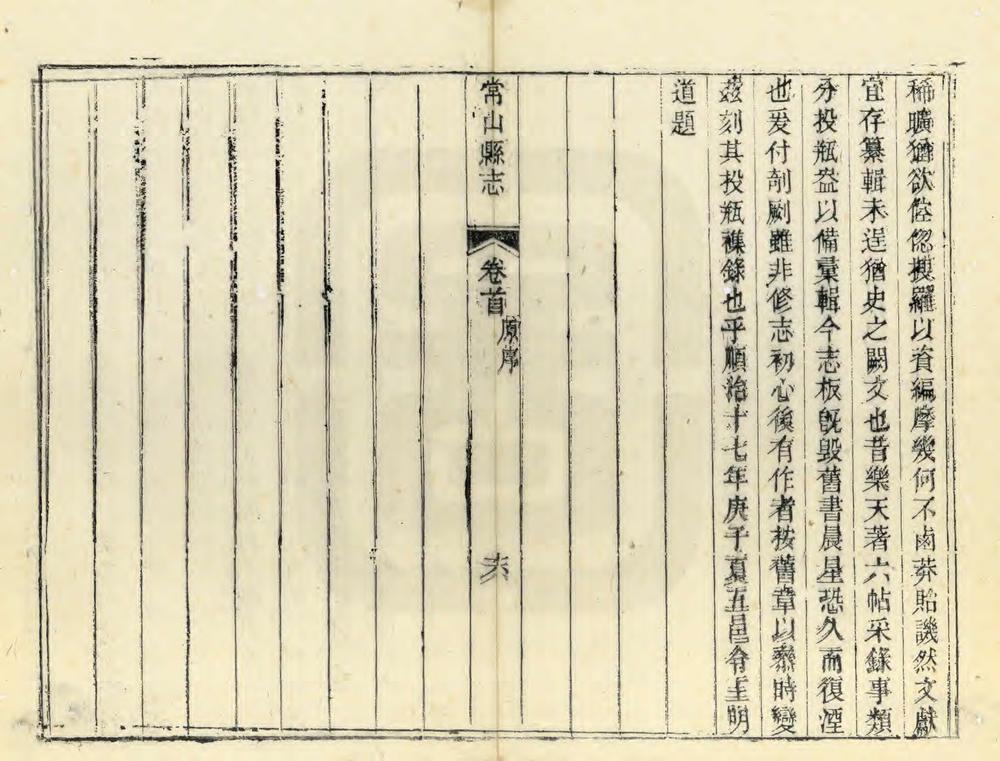 稱曠猶欲倥偬摸羅以資編摩幾何不鹵莽貽譏然文獻
宜存纂輯未遑猶史之闕文也昔樂天著六帖采錄事類
分投瓶盎以備彙輯今志板旣毀舊書晨星恐久而復湮
也爰付剞劂雖非修志初心後有作者按舊章以叅時變
茲刻其投瓶襍錄也乎順治十七年庚子夏五邑令王明
道題
常山縣志
卷首
原序
六